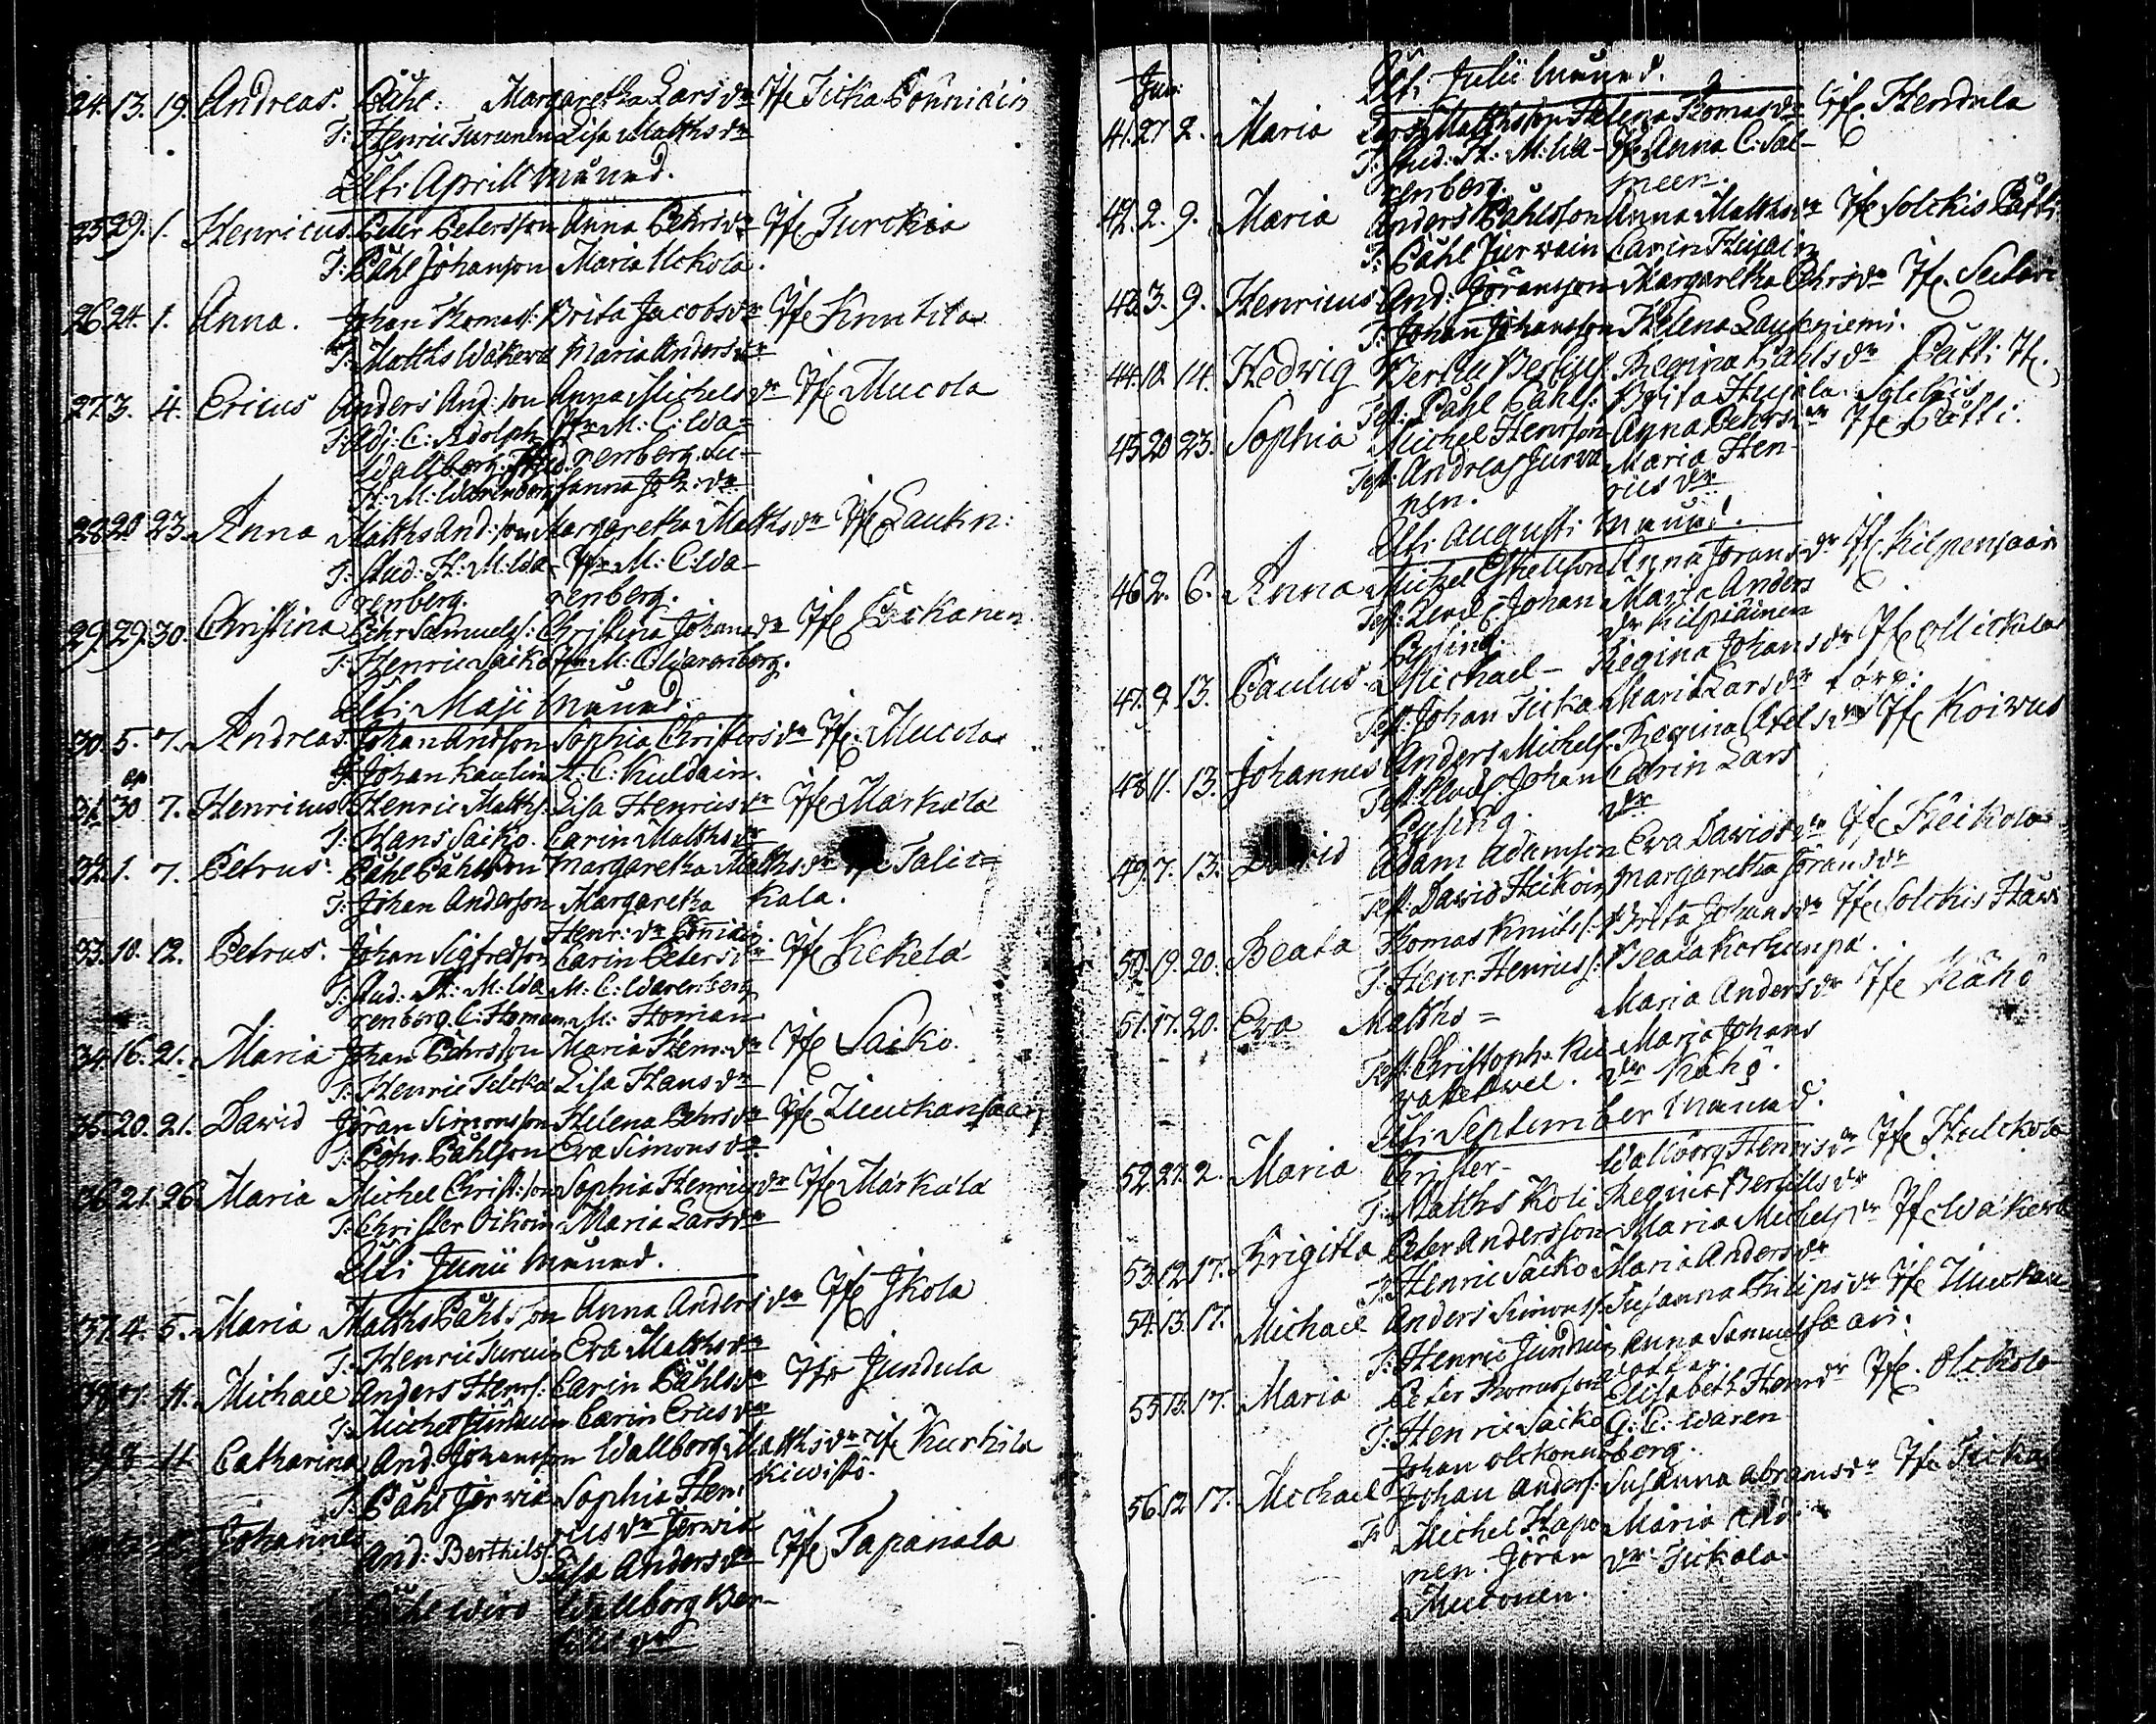 24. 13. 19. Andreas. Påhl: Margaretha Larsdr Ifr Ticka Pönniäin
T: Henric Turunen Lisa Matthsdr
Uti Aprill Månad.
25 29. 1. Henricus. Peter Petersson Anna Pehrsdr Ifr Turckia
T: Påhl Johanson Maria Uckola.
26 24. 1. Anna. Johan Thomas: Brita Jacobsdr Ifr Knutila
T: Matths Wäkewä Maria Andersdr
27 3. 4. Ericus Anders And:son Anna Michelsdr Ifr Mucola
T: Adj: C: Adolph Ifr M: C: Wa=
Wallborg. Stud. renberg. Su-
H: M: Warenberg sanna Joh: dr
28 20 23. Anna Matths And:son Margaretha Matthsdr Ifr Laukin:
T: Stud: H: M: Wa- Ifr M: C: Wa-
renberg. renberg.
29. 29. 30. Christina Pehr Samuels: Christina Johansdr Ifr
T: Henric Saiko Ifr M: C: Warenberg.
Uti Maji Månad.
30. 5. 7. Andreas. Johan Andson Sophia Christersdr Ifr Mucola
T: Johan Kaukin A: C: Kuldain.
ap
31. 30 7. Henricus Henric Matths: Lisa Henricsdr Ifr Märkälä
T: Hans Saiko. Carin Matthsdr
32. 1. 7. Petrus. Påhl Påhlson Margaretha Matthsdr Ifr Talic=
T: Johan Anderson Margaretha kala.
Henr: dr
33. 10. 12. Petrus. Johan Sigfredson Carin Petersdr Ifr Kekelä
T: Stud: H: M: Wa M: C: Warenberg
renberg. C: Homan M: Homan
34. 16. 21. Maria Johan Pehrsson Maria Henr: dr Ifr Saiko.
T: Henric Telckä Lisa Hansdr
35. 20. 21. David Jöran Simonsson Helena Pehrsdr Ifr Muckansaari
T: Pehr Påhlson Eva Simonsdr
36 21 26 Maria Michel Christ:son Sophia Henricsdr Ifr Märkälä
T: Christer Oikoin Maria Larsdr
Uti Junii Månad.
37. 4. 5. Maria Matths Påhlson Anna Andersdr Ifr Ikola
T: Henric Turuin Eva Matthsdr
11. Michael Anders Henrs: Carin Påhlsdr Ifr Jundula
T: Michel Carin Ericsdr
8 11. Catharina And. Johansson Wallborg Matthsdr Ifr Kurkila
T: Påhl Järwin Sophia Hen: Kiwistö.
ricsdr Järwin
Johannes And: Berthils: Lisa Andersdr Ifr Tapanala
Påhl Wiro Wallborg Ber-
tillsdr
Jun: Uti Julii Månad.
41. 27 2. Maria Lars Matthsson Helena Thomasdr Ifr. Hendula
T: Stud: H: M: Wa- Ifr Anna C: Sal-
renberg. meen.
42. 2. 9. Maria Anders Påhlsson Anna Matthsdr Ifr Solckis Pätti
T: Påhl Järwäin Carin Hujain
43 3. 9. Henricus And: Göransson Margaretha Pehrsdr Ifr.
T: Johan Johansson Helena Laukniemi.
44. 10. 14. Hedwig Bertill Bertils: Regina Påhlsdr Pätti If.
Test: Påhl Påhls: Brita Hujala. Solckis
45 20 23. Sophia Michel Henrson Anna Pehrsdr Ifr Pätti.
Test: Andreas Jurwa Maria Hen-
nen. ricsdr
Uti Augusti Månad.
46 2. 6. Anna Michel Eskellson Anna Jöransdr Ifr Kilpensaari
Test: Johan Maria Anders
Cyping. dr Kilpiäinen
47. 9. 13. Paulus Michael - Regina Johansdr Ifr Mickela
Test: Johan Ticka Maria Larsdr torp:
48 11. 13. Johannes Anders Michels: Regina Axelsdr Ifr Koiwus
Test: Johan Catrin Lars
Cyping. dr
49. 7. 13. David Adam Adamson Eva Davidsdr Ifr Heikola
Test: David Heikoin Margaretha Jöransdr
50. 19. 20. Beata Thomas Knuts: Brita Johansdr Ifr Solckis
T: Henr: Henrics: Beata Korhunpä.
51. 17. 20. Eva Matths = Maria Andersdr Ifr Kähö
Test: Christoph: Ku- Maria Johans
dr Kähö.
Uti September Månad.
52. 27. 2. Maria Christer- Wallborg Henricsdr Ifr Hulckola
T: Matths Koli Regina Bertillsdr
53. 12. 17. Brigitta Peter Andersson Maria Michelsdr Ifr Wäkewä
T: Henric Saiko Maria Andersdr
54. 13. 17. Michael Anders Simonss: Susanna Philipsdr Ifr Muckan
T: Henric Junduin Anna Samuels saari.
dotter.
55 13. 17. Maria Peter Thomasson Elisabeth Henrsdr Ifr. Olckola
T: Henric Saiko G: C: Waren-
Johan Olckonen berg.
56. 12 17. Michael Johan Anders: Susanna Abramsdr Ifr Tickala
T: Michel Hapo- Maria And:
nen. Jöran dr Tickala
Mucoinen.